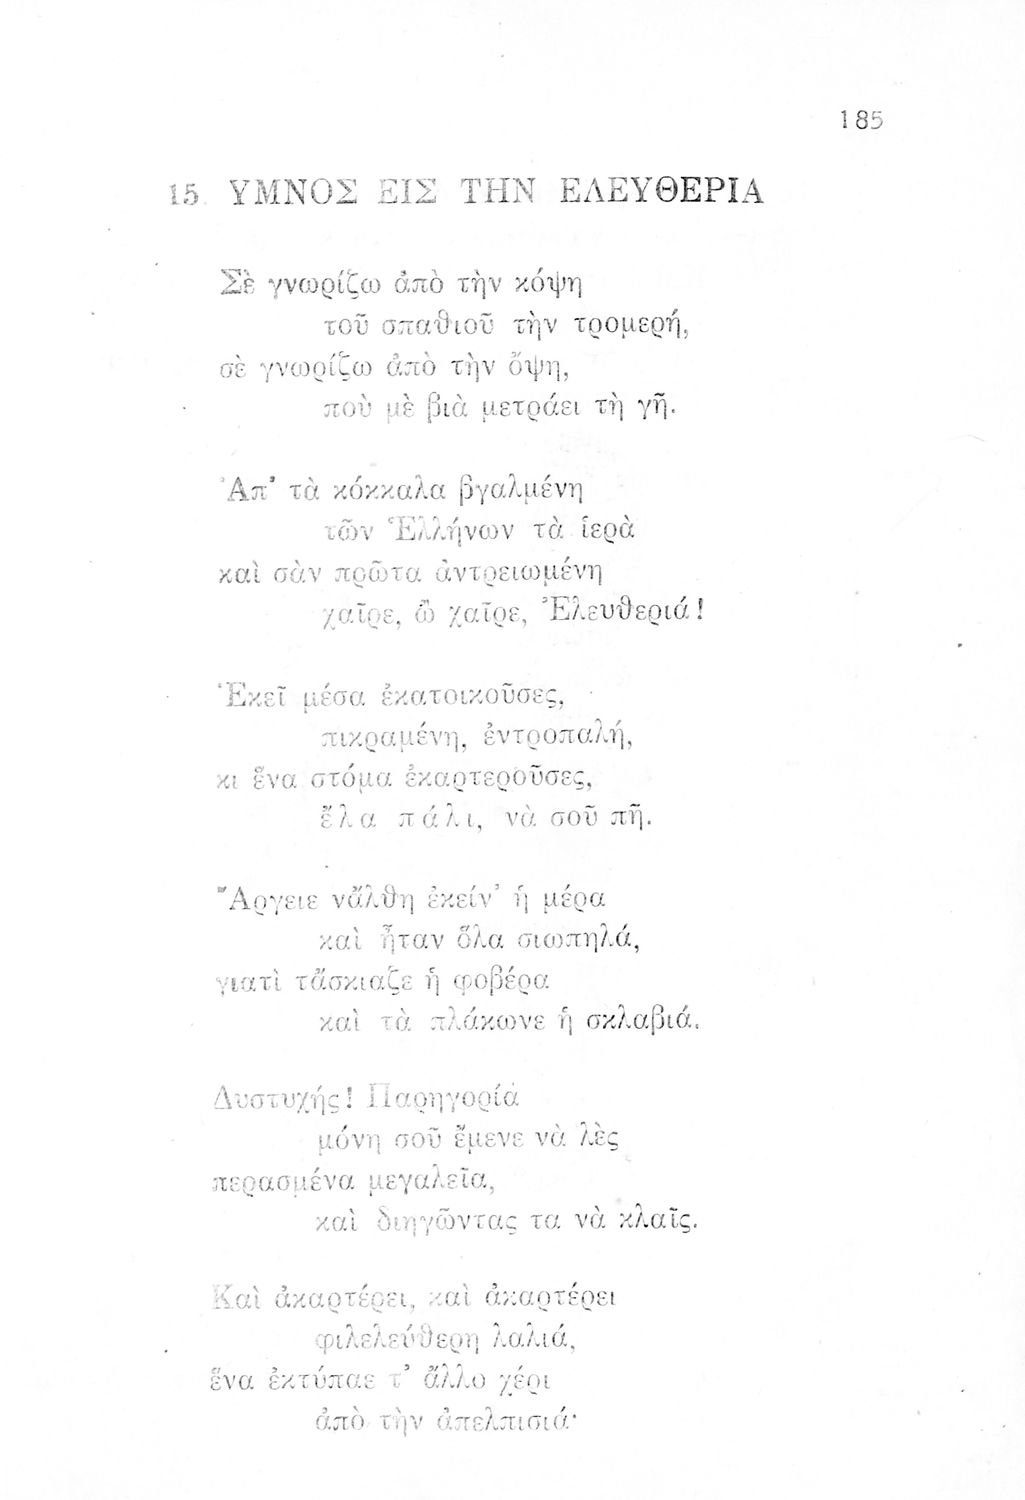 185
15. ΥΜΝΟΣ ΕΙΣ ΤΗΝ ΕΛΕΥΘΕΡΙΑ
Σὲ γνωρίζω ἀπὸ τὴν κόψη
τοῦ σπαθιοῦ τὴν τρομερή,
σὲ γνωρίζω ἀπὸ τὴν ὄψη,
ποὺ μὲ βιὰ μετράει τὴ γῆ.
Ἀπ' τὰ κόκκαλα βγαλμένη
τῶν Ἑλλήνων τὰ ἱερὰ
καὶ σὰν πρῶτα ἀντρειωμένη
χαῖρε, ὦ χαῖρε, Ἐλευθεριά!
Ἐκεῖ μέσα ἐκατοικοῦσες,
πικραμένη, ἐντροπαλή,
κι ἕνα στόμα ἐκαρτεροῦσες,
ἔλα πάλι, νὰ σοῦ πῆ.
Ἄργειε νἄλθη ἐκείν' ἡ μέρα
καὶ ἦταν ὅλα σιωπηλά,
γιατὶ τἄσκιαζε ἡ φοβέρα
καὶ τὰ πλάκωνε ἡ σκλαβιά.
Δυστυχής! Παρηγορία
μόνη σοῦ ἔμενε νὰ λὲς
περασμένα μεγαλεῖα,
καὶ διηγῶντας τα νὰ κλαῖς.
Καὶ ἀκαρτέρει, καὶ ἀκαρτέρει
φιλελεύθερη λαλιά,
ἕνα ἐκτύπαε τ' ἄλλο χέρι
ἀπὸ τὴν ἀπελπισιά·